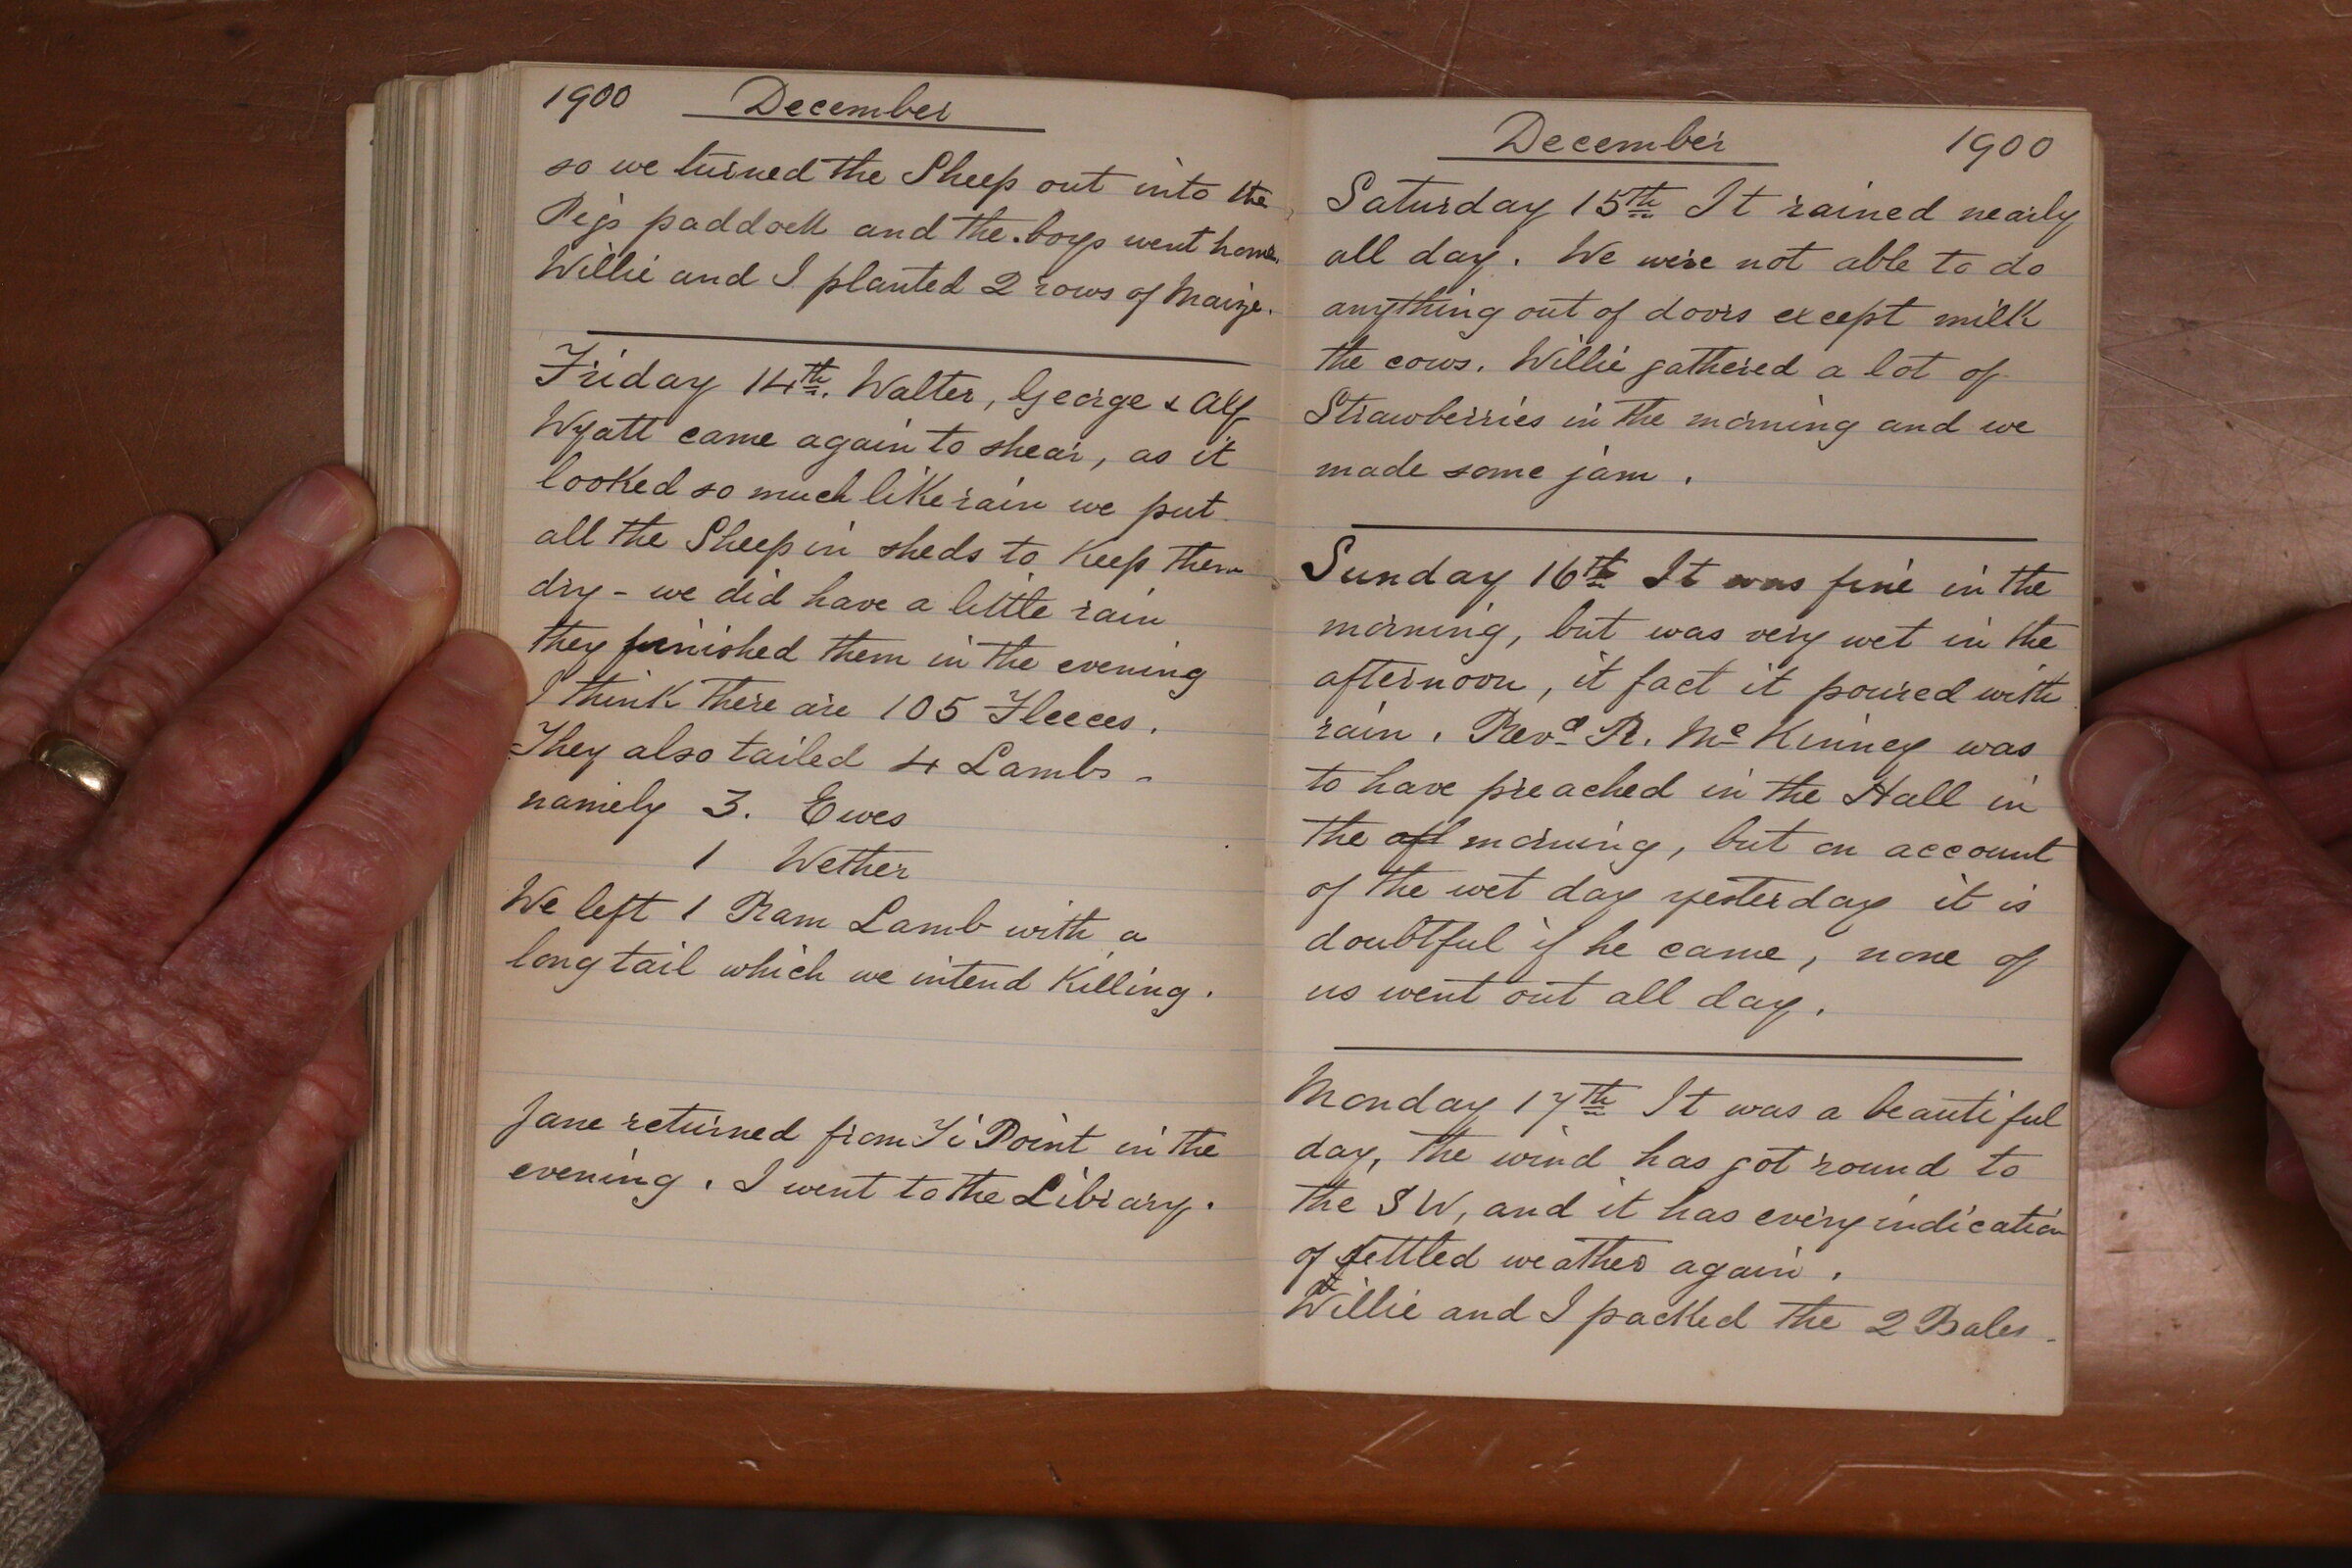 1900 December
so we turned the Sheep out into the
Pigs paddock and the boys went home.
Willie and I planted 2 rows of Maize.
Friday 14th. Walter, George & Alf
Wyatt came again to shear, as it
looked so much like rain we put
all the Sheep in sheds to Keep them
dry - we did have a little rain
they finished them in the evening
I think there are 105 Fleeces.
They also tailed 4 Lambs -
namely 3. Ewes
1 Wether
We left 1 Ram Lamb with a
long tail which we intend Killing.
Jane returned from Ti Point in the
evening. I went to the Library.
December 1900
Saturday 15th It rained nearly
all day. We were not able to do
anything out of doors except milk
the cows. Willie gathered a lot of
Strawberries in the morning and we
made some jam.
Sunday 16th It was fine in the
morning, but was very wet in the
afternoon, it fact it poured with
rain. Revd R. Mc Kinney was
to have preached in the Hall in
the aft morning, but on account
of the wet day yesterday it is
doubtful if he came, none of
us went out all day.
Monday 17th It was a beautiful
day, the wind has got round to
the SW, and it has every indication
of settled weather again.
Willie and I packed the 2 Bales -